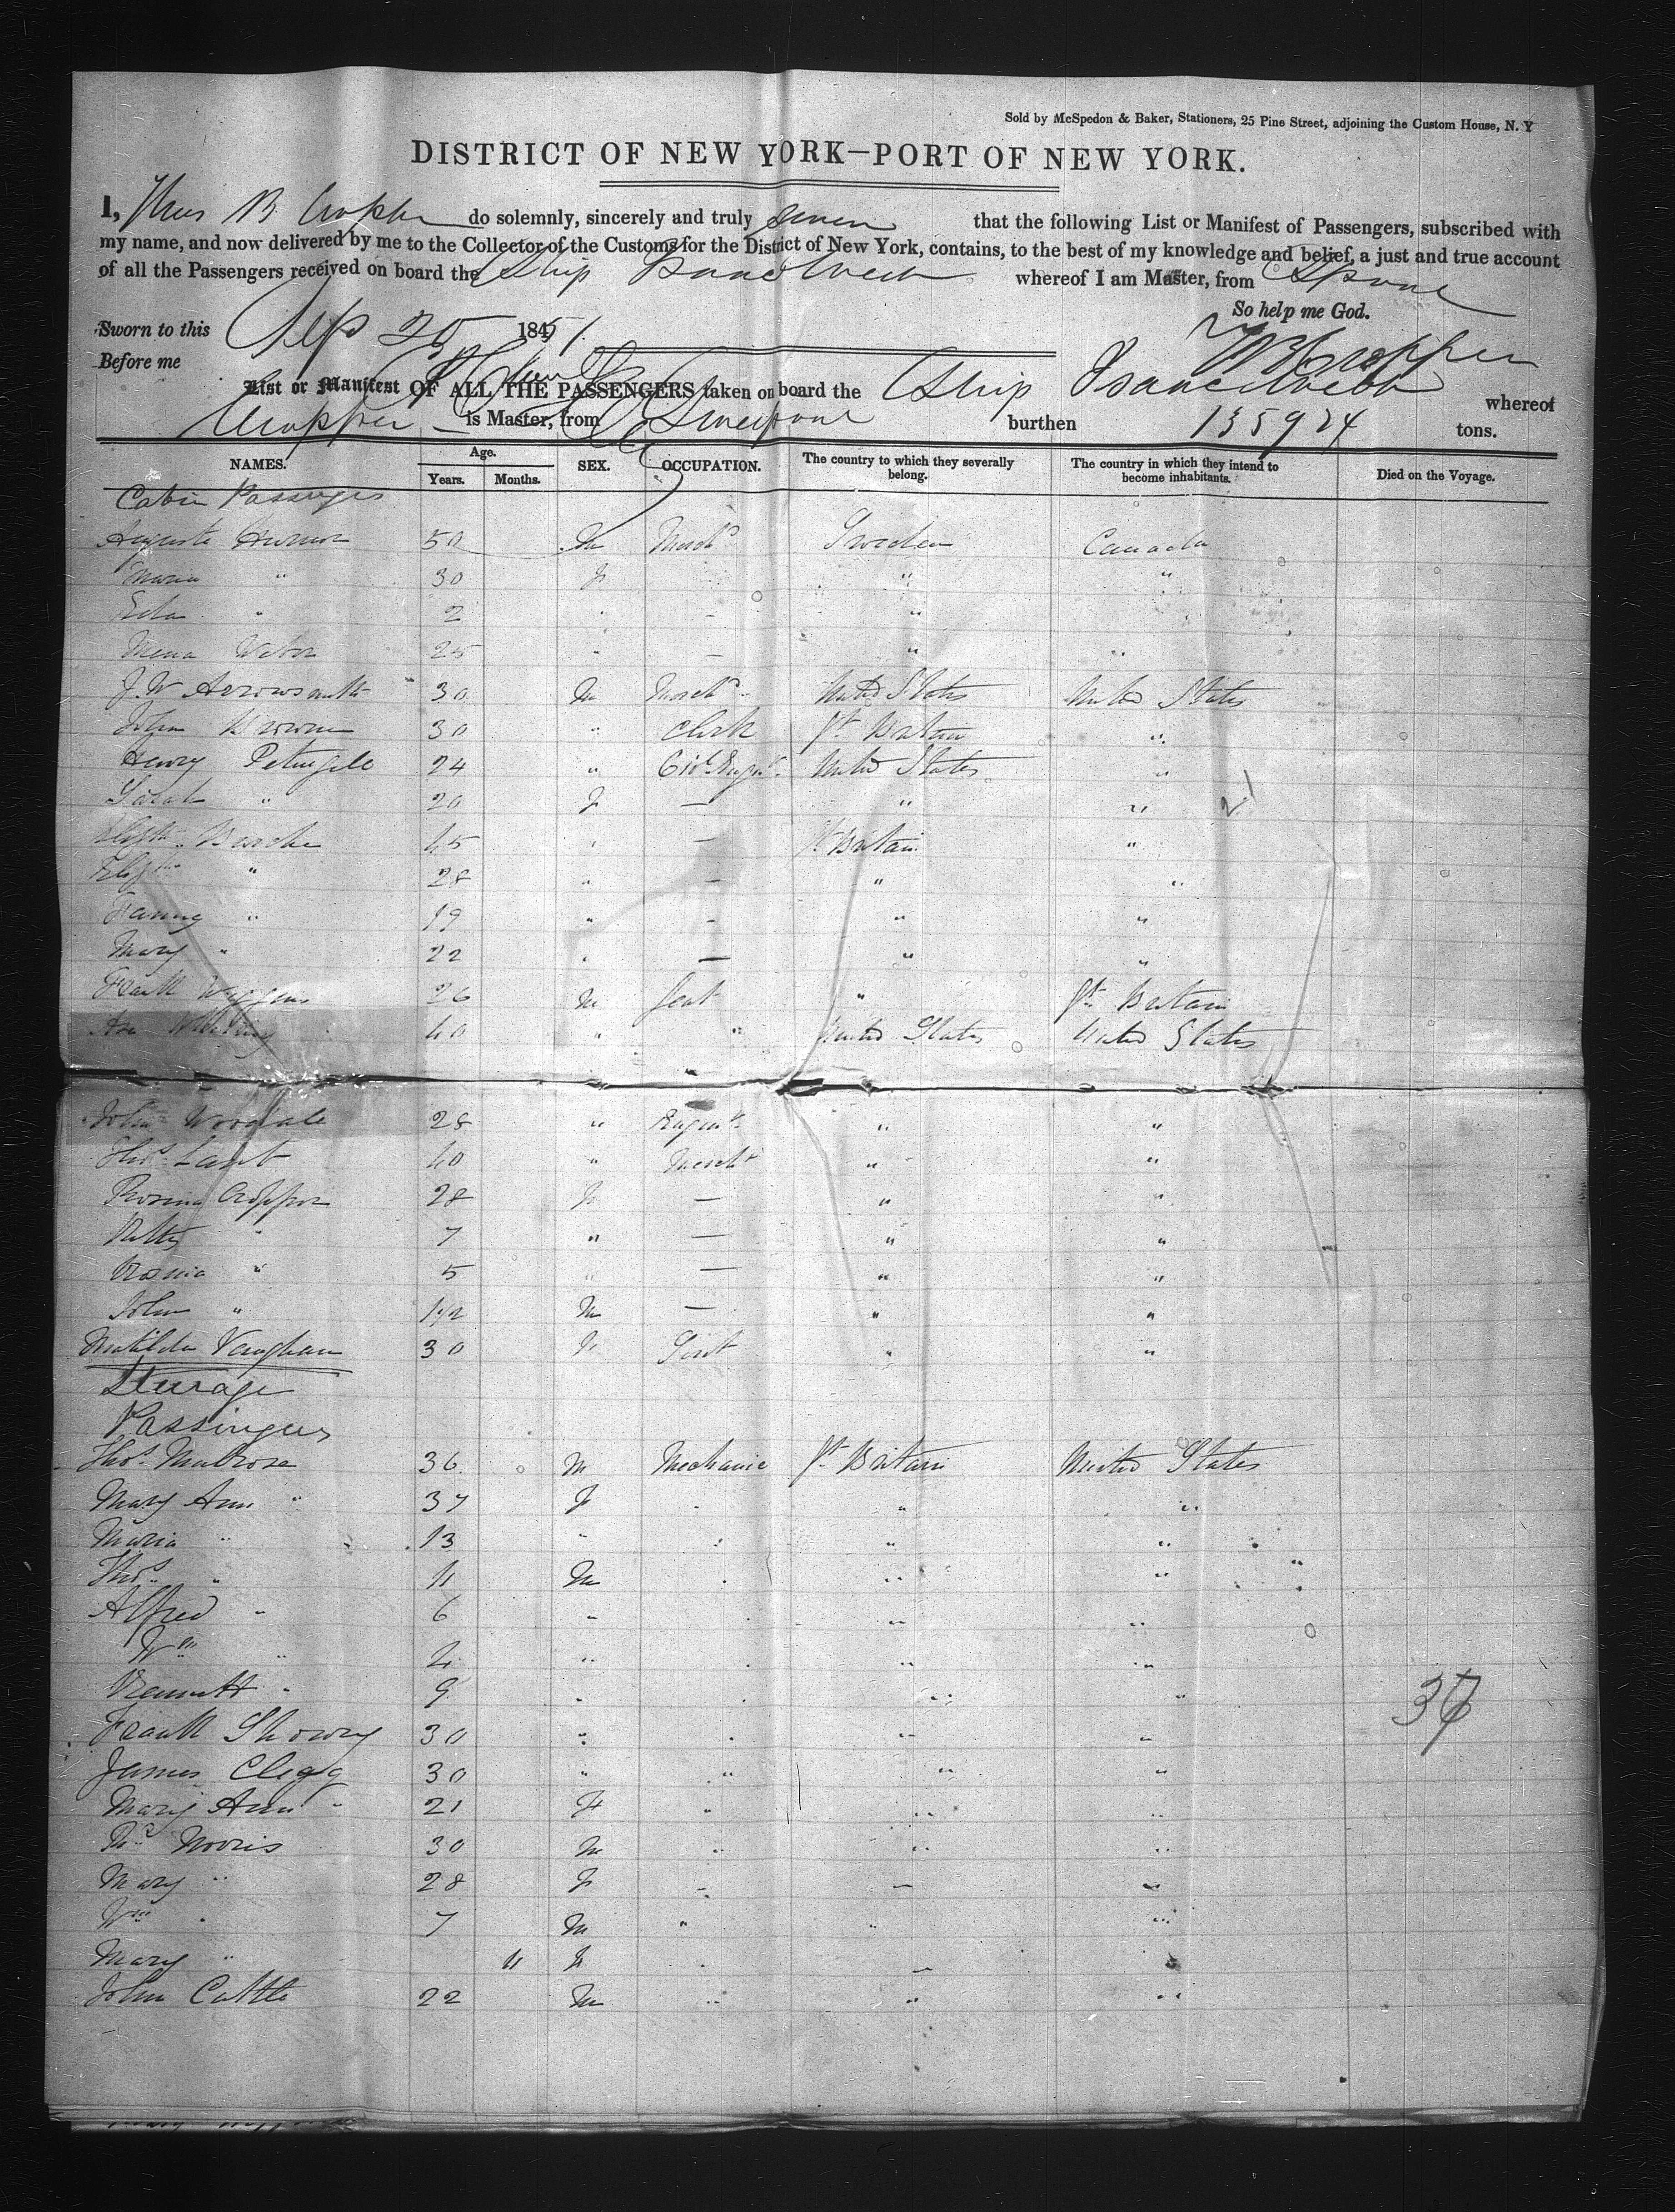 Sold by McSpedon & Baker, Stationers, 25 Pine Street, adjoining the Custom House, N. Y
DISTRICT OF NEW YORK—PORT OF NEW YORK.
I, Thos B. Cropper do solemnly, sincerely and truly swear that the following List or Manifest of Passengers, subscribed with
my name, and now delivered by me to the Collector of the Customs for the District of New York, contains, to the best of my knowledge and belief, a just and true account
of all the Passengers received on board the Ship Isaac Webb whereof I am Master, from Lpool
So help me God.
Sworn to this Sep 25 1851.
Before me T B Cropper
List or Manifest OF ALL THE PASSENGERS taken on board the Ship Isaac Webb whereof
Cropper is Master, from Liverpool burthen 1359 24 tons.
NAMES. Age. Years. Months. SEX. OCCUPATION. The country to which they severally belong. The country in which they intend to become inhabitants. Died on the Voyage.
Cabin Passengers
Auguste 50 M Mercht Sweden Canada
Maria " 30 F " "
Eda " 2 " - " "
Mena Weber 25 " — " "
J. W Arrowsmith 30 M Mercht United States United States
John Brown 30 " Clerk Gt Britain "
Henry Petingill 24 " Civl Engnr United States "
Sarah " 20 F — " "
Elizth Burche 45 " — Gt Britain "
Elizth " 28 " — " "
Fanny " 19 " - " "
Mary " 22 " — " "
Frank Wiggins 26 M Gent " Gt Britain
Asa 40 " " United States United States
John Woodale 28 " Enginr " "
Thos Lant 40 " Mercht " "
Rosina Cropper 28 F — " "
7 " — " "
Rosina " 5 " — " "
John " 1 1/2 M — " "
Matilda Vaughan 30 F Sert " "
Steerage
Passengers
Thos. Mulrose 36 M Mechanic Gt Britain United States
Mary Ann " 37 F " " "
Maria " 13 " " " "
Thos " 11 M " " "
Alfred " 6 " " " "
Wm " 4 " " " "
Bennett " 9 " " " "
37
Frank Showry 30 " " " "
James Clegg 30 " " " "
Mary Ann " 21 F " " "
Norris 30 M " " "
Mary " 28 F " " "
Wm " 7 M " " "
Mary " 11 F " " "
John Cattle 22 M " " "